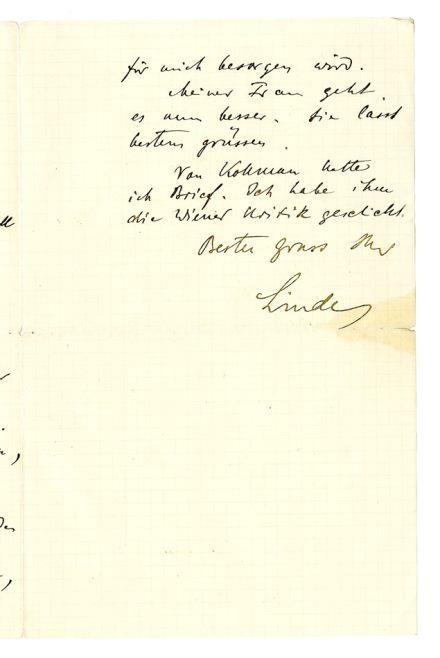 für mich besorgen wird.
Meiner Frau geht
es nun besser. Sie lässt
bestens grüssen.
Von Kollman hatte
ich Brief. Ich habe ihm
die Wiener Kritik geschickt.
Besten Gruss Ihr
Linde